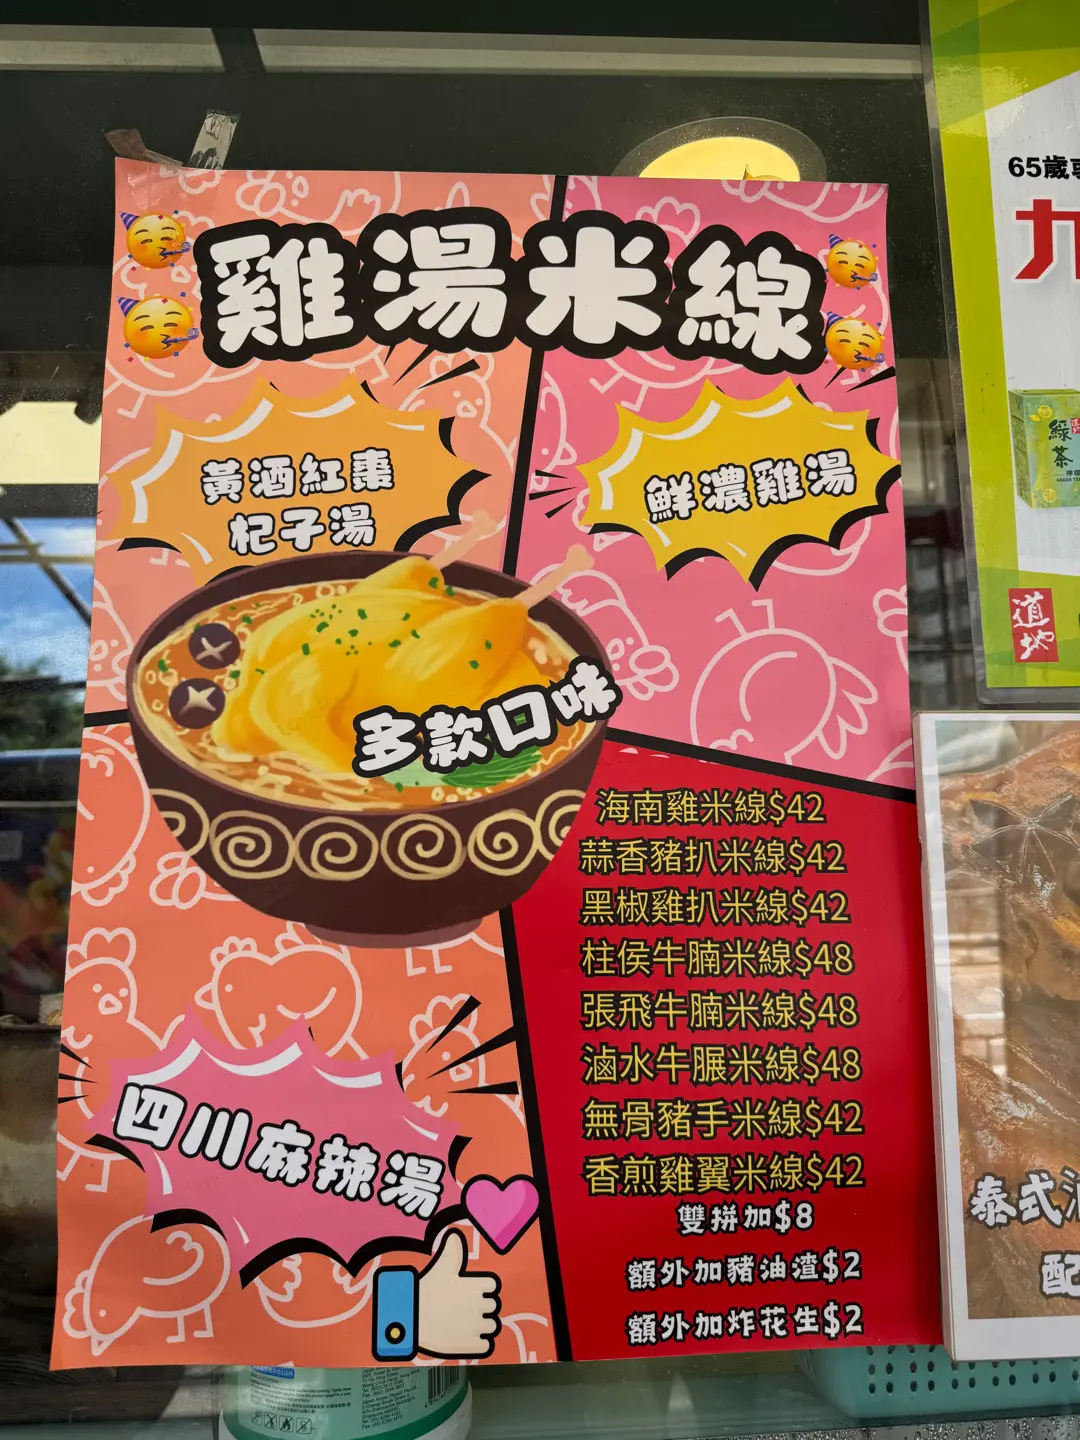 雞湯米線
黃酒紅棗
杞子湯
鮮濃雞湯
多款口味
海南雞米線$42
蒜香豬扒米線$42
黑椒雞扒米線$42
柱侯牛腩米線$48
張飛牛腩米線$48
滷水牛𦟌米線$48
無骨豬手米線$42
香煎雞翼米線$42
雙拼加$8
額外加豬油渣$2
額外加炸花生$2
四川麻辣湯
65歲
九
綠茶
GREEN TEA
道地
泰式
配